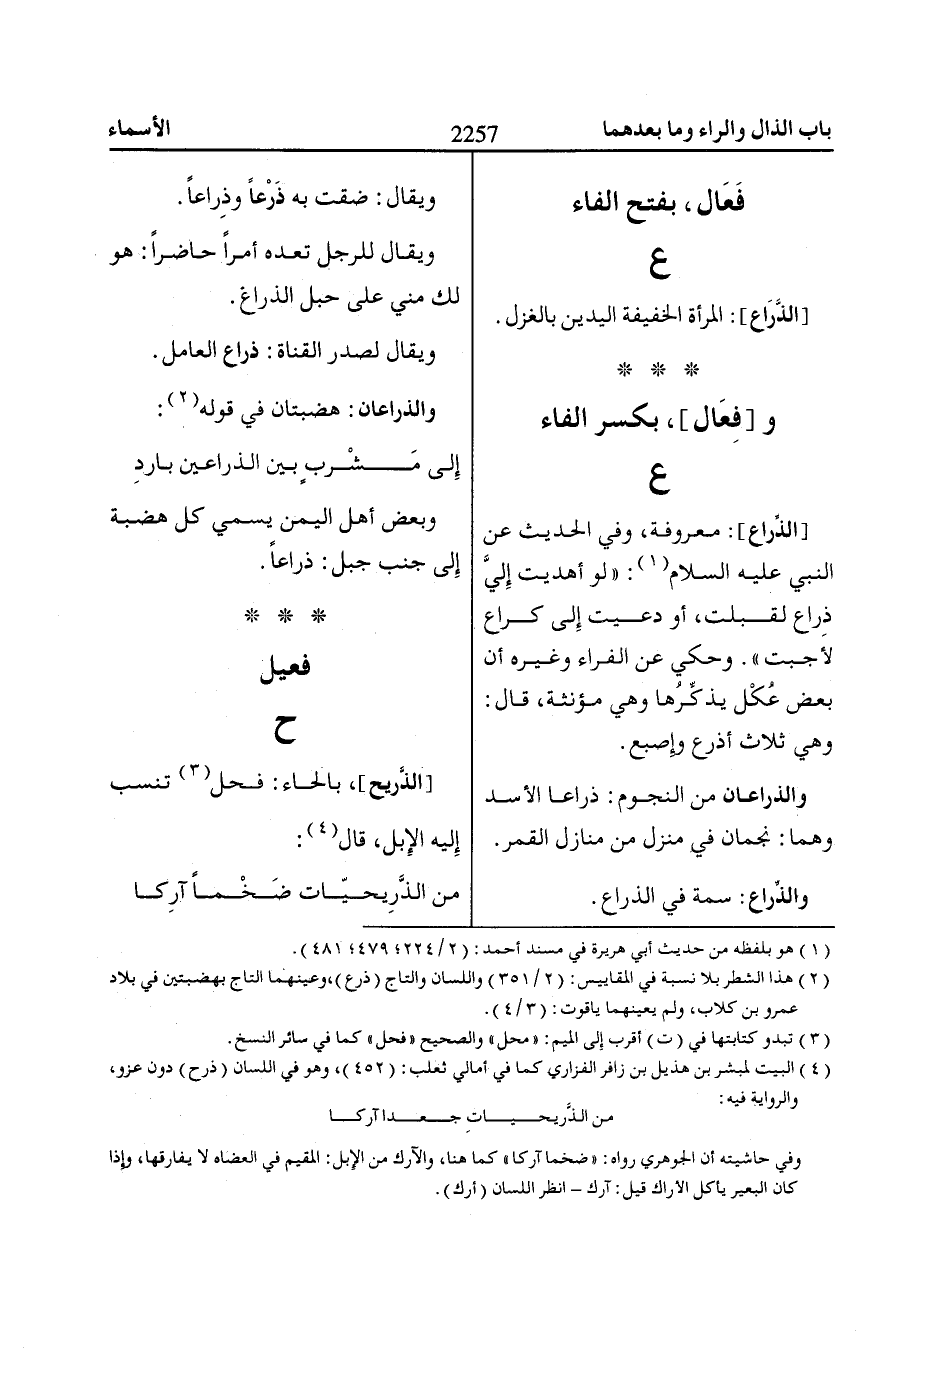 باب الذال والراء وما بعدهما 2257 الأسماء
فَعَال، بفتح الفاء
ع
[الذَّرَاع]: المرأة الخفيفة اليدين بالغزل.
* * *
و [فِعَال]، بكسر الفاء
ع
[الذِّراع]: معروفة، وفي الحديث عن
النبي عليه السلام(١): «لو أهديت إليَّ
ذراع لقبلت، أو دعيت إلى كراع
لأجبت». وحكي عن الفراء وغيره أن
بعض عُكْل يذكِّرُها وهي مؤنثة، قال:
وهي ثلاث أذرع وإصبع.
والذراعان من النجوم: ذراعا الأسد
وهما: نجمان في منزل من منازل القمر.
والذِّراع: سمة في الذراع.
ويقال: ضقت به ذَرْعاً وذِراعاً.
ويقال للرجل تعده أمراً حاضراً: هو
لك مني على حبل الذراع.
ويقال لصدر القناة: ذراع العامل.
والذراعان: هضبتان في قوله(٢):
إلى مَشْربٍ بين الذراعين باردِ
وبعض أهل اليمن يسمي كل هضبة
إلى جنب جبل: ذراعاً.
* * *
فعيل
ح
[الذَّريح]، بالحاء: فحل(٣) تنسب
إليه الإبل، قال(٤):
من الذَّرِيحيّات ضَخْماً آركا
(١) هو بلفظه من حديث أبي هريرة في مسند أحمد: (٢/٢٢٤؛ ٤٧٩؛ ٤٨١).
(٢) هذا الشطر بلا نسبة في المقاييس: (٢/٣٥١) واللسان والتاج (ذرع)،وعينهما التاج بهضبتين في بلاد
عمرو بن كلاب، ولم يعينهما ياقوت: (٣/٤).
(٣) تبدو كتابتها في (ت) أقرب إلى الميم: «محل» والصحيح «فحل» كما في سائر النسخ.
(٤) البيت لمبشر بن هذيل بن زافر الفزاري كما في أمالي ثعلب: (٤٥٢)، وهو في اللسان (ذرح) دون عزو،
والرواية فيه:
من الذَّرِيحيات جعدا آركا
وفي حاشيته أن الجوهري رواه: «ضخما آركا» كما هنا، والآرك من الإبل: المقيم في العضاه لا يفارقها، وإذا
كان البعير يأكل الأراك قيل: آرك – انظر اللسان (أرك).